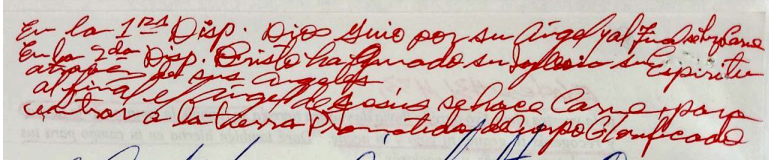 En la 1ra Disp. Dios guio por su Angel y al Final se hizo Carne
En la 2da Disp. Cristo ha guiado su Iglesia su Espiritu
atravez de sus angeles
al final el Angel de Jesús se hace Carne, para
entrar a la tierra Prometida, del cuerpo Glorificado